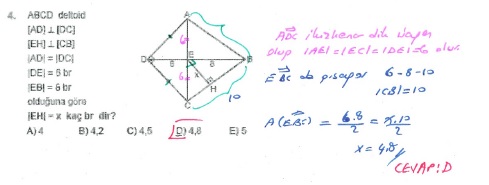 4. ABCD deltoid
[AD] ⊥ [DC]
[EH] ⊥ [CB]
|AD| = |DC|
|DE| = 6 br
|EB| = 8 br
olduğuna göre
|EH| = x kaç br dir?
A) 4 B) 4,2 C) 4,5 D) 4,8 E) 5
A
6
D 6 E 8 B
6 x
H
C
10
ADC ikizkenar dik üçgen
olup |AE|=|EC|=|DE|=6 olur.
EBC de pisagor 6-8-10
|CB|=10
A(EBC) = 6.8/2 = x.10/2
x = 4,8
CEVAP: D